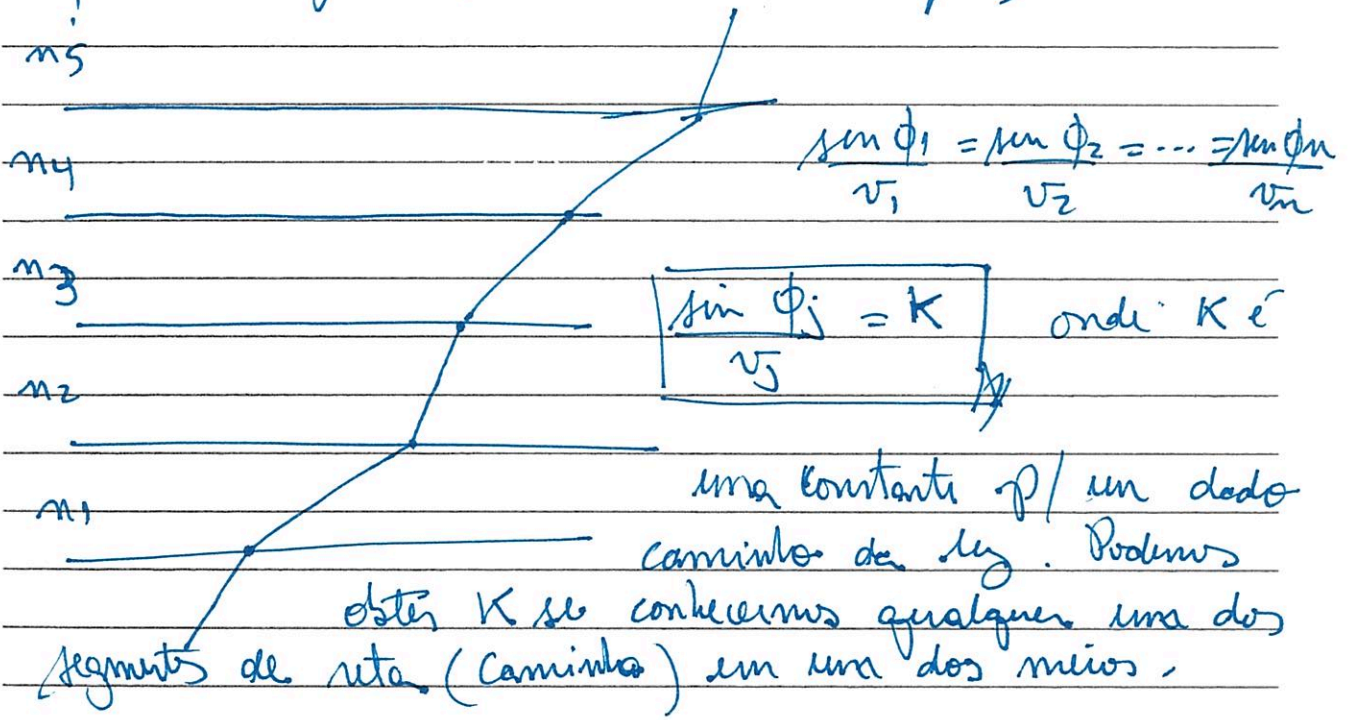 n5
n4
sen ϕ1 / v1 = sen ϕ2 / v2 = ... = sen ϕn / vn
n3
sin ϕj / vj = K onde K é
n2
uma constante p/ um dado
n1
caminho da luz. Podemos
obter K se conhecermos qualquer uma dos
segmentos de reta (Caminho) em um dos meios.